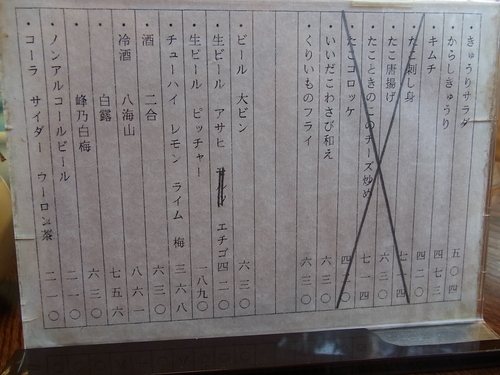 ・きゅうりサラダ 五〇四
・からしきゅうり 四七三
・キムチ 四二〇
・たこ刺し身 七一四
・たこ唐揚げ 六三〇
・たこときのこのチーズ炒め 七一四
・たこコロッケ 四二〇
・いいだこわさび和え 六三〇
・くりいものフライ 六三〇
・ビール 大ビン 六三〇
・生ビール アサヒ エチゴ 四二〇
・生ビール ピッチャー 一八九〇
・チューハイ レモン ライム 梅 三六八
・酒 二合 六三〇
・冷酒 八海山 八六一
・白露 七五六
峰乃白梅 六三〇
・ノンアルコールビール 二一〇
・コーラ サイダー ウーロン茶 二一〇